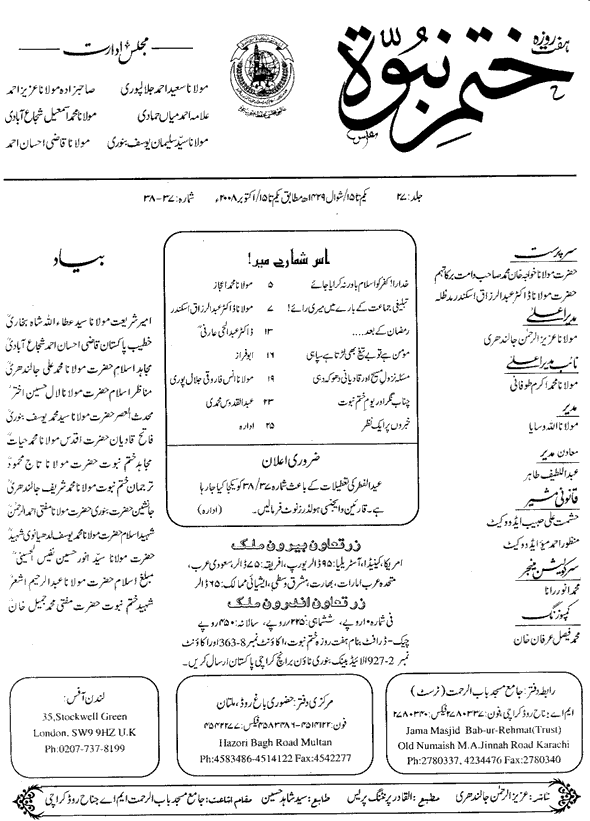 ہفت روزہ
ختم نبوة
مجلس ادارت
مولانا سعید احمد جلالپوری
صاحبزادہ مولانا عزیز احمد
علامہ احمد میاں حمادی
مولانا محمد اسمعیل شجاع آبادی
مولانا سید سلیمان یوسف بنوری
مولانا قاضی احسان احمد
جلد: ۲۷ یکم تا ۱۵/شوال ۱۴۲۹ھ مطابق یکم تا ۱۵/اکتوبر ۲۰۰۸ء شمارہ: ۳۷-۳۸
سرپرست
حضرت مولانا خواجہ خان محمد صاحب دامت برکاتہم
حضرت مولانا ڈاکٹر عبدالرزاق اسکندر مدظلہ
مدیر اعلیٰ
مولانا عزیز الرحمٰن جالندھری
نائب مدیر اعلیٰ
مولانا محمد اکرم طوفانی
مدیر
مولانا اللہ وسایا
معاون مدیر
عبداللطیف طاہر
قانونی مشیر
حشمت علی حبیب ایڈووکیٹ
منظور احمد میؤ ایڈووکیٹ
سرکولیشن منیجر
محمد انور رانا
کمپوزنگ
محمد فیصل عرفان خان
اس شمارے میں!
خدارا! کفر کو اسلام باور نہ کرایا جائے ۵ مولانا محمد اعجاز
تبلیغی جماعت کے بارے میں میری رائے! ۷ مولانا ڈاکٹر عبدالرزاق اسکندر
رمضان کے بعد.... ۱۳ ڈاکٹر عبدالحئی عارفیؒ
مومن ہے تو بے تیغ بھی لڑتا ہے سپاہی ۱۶ ابوفراز
مسئلہ نزول مسیح اور قادیانی دھوکہ دہی ۱۹ مولانا انس فاروقی جلال پوری
چناب نگر اور یوم ختم نبوت ۲۳ عبدالقدوس محمدی
خبروں پر ایک نظر ۲۵ ادارہ
ضروری اعلان
عیدالفطر کی تعطیلات کے باعث شمارہ ۳۷/۳۸ کو یکجا کیا جارہا
ہے۔ قارئین و ایجنسی ہولڈرز نوٹ فرمالیں۔ (ادارہ)
زرتعاون بیرون ملک
امریکا، کینیڈا، آسٹریلیا: ۹۵ ڈالر یورپ، افریقہ: ۷۵ ڈالر، سعودی عرب،
متحدہ عرب امارات، بھارت، مشرق وسطیٰ، ایشیائی ممالک: ۶۵ ڈالر
زرتعاون اندرون ملک
فی شمارہ ۱۰ روپے، ششماہی: ۲۲۵ روپے، سالانہ: ۴۵۰ روپے
چیک-ڈرافٹ بنام ہفت روزہ ختم نبوت، اکاؤنٹ نمبر 8-363 اور اکاؤنٹ
نمبر 2-927 الائیڈ بینک بنوری ٹاؤن برانچ کراچی پاکستان ارسال کریں۔
بیاد
امیر شریعت مولانا سید عطاء اللہ شاہ بخاریؒ
خطیب پاکستان قاضی احسان احمد شجاع آبادیؒ
مجاہد اسلام حضرت مولانا محمد علی جالندھریؒ
مناظر اسلام حضرت مولانا لال حسین اخترؒ
محدث العصر حضرت مولانا سید محمد یوسف بنوریؒ
فاتح قادیان حضرت اقدس مولانا محمد حیاتؒ
مجاہد ختم نبوت حضرت مولانا تاج محمودؒ
ترجمان ختم نبوت مولانا محمد شریف جالندھریؒ
جانشین حضرت بنوری حضرت مولانا مفتی احمد الرحمٰنؒ
شہید اسلام حضرت مولانا محمد یوسف لدھیانوی شہیدؒ
حضرت مولانا سید انور حسین نفیس الحسینیؒ
مبلغ اسلام حضرت مولانا عبدالرحیم اشعرؒ
شہید ختم نبوت حضرت مفتی محمد جمیل خانؒ
رابطہ دفتر: جامع مسجد باب الرحمت (ٹرسٹ)
ایم اے جناح روڈ کراچی، فون: ۲۷۸۰۳۳۷ فیکس: ۲۷۸۰۳۴۰
Jama Masjid Bab-ur-Rehmat(Trust)
Old Numaish M.A.Jinnah Road Karachi
Ph:2780337, 4234476 Fax:2780340
مرکزی دفتر: حضوری باغ روڈ، ملتان
فون: ۴۵۸۳۴۸۶-۴۵۱۴۱۲۲ فیکس: ۴۵۴۲۲۷۷
Hazori Bagh Road Multan
Ph:4583486-4514122 Fax:4542277
لندن آفس:
35,Stockwell Green
London, SW9 9HZ U.K
Ph:0207-737-8199
ناشر: عزیز الرحمٰن جالندھری مطبع: القادر پرنٹنگ پریس طابع: سید شاہد حسین مقام اشاعت: جامع مسجد باب الرحمت ایم اے جناح روڈ کراچی